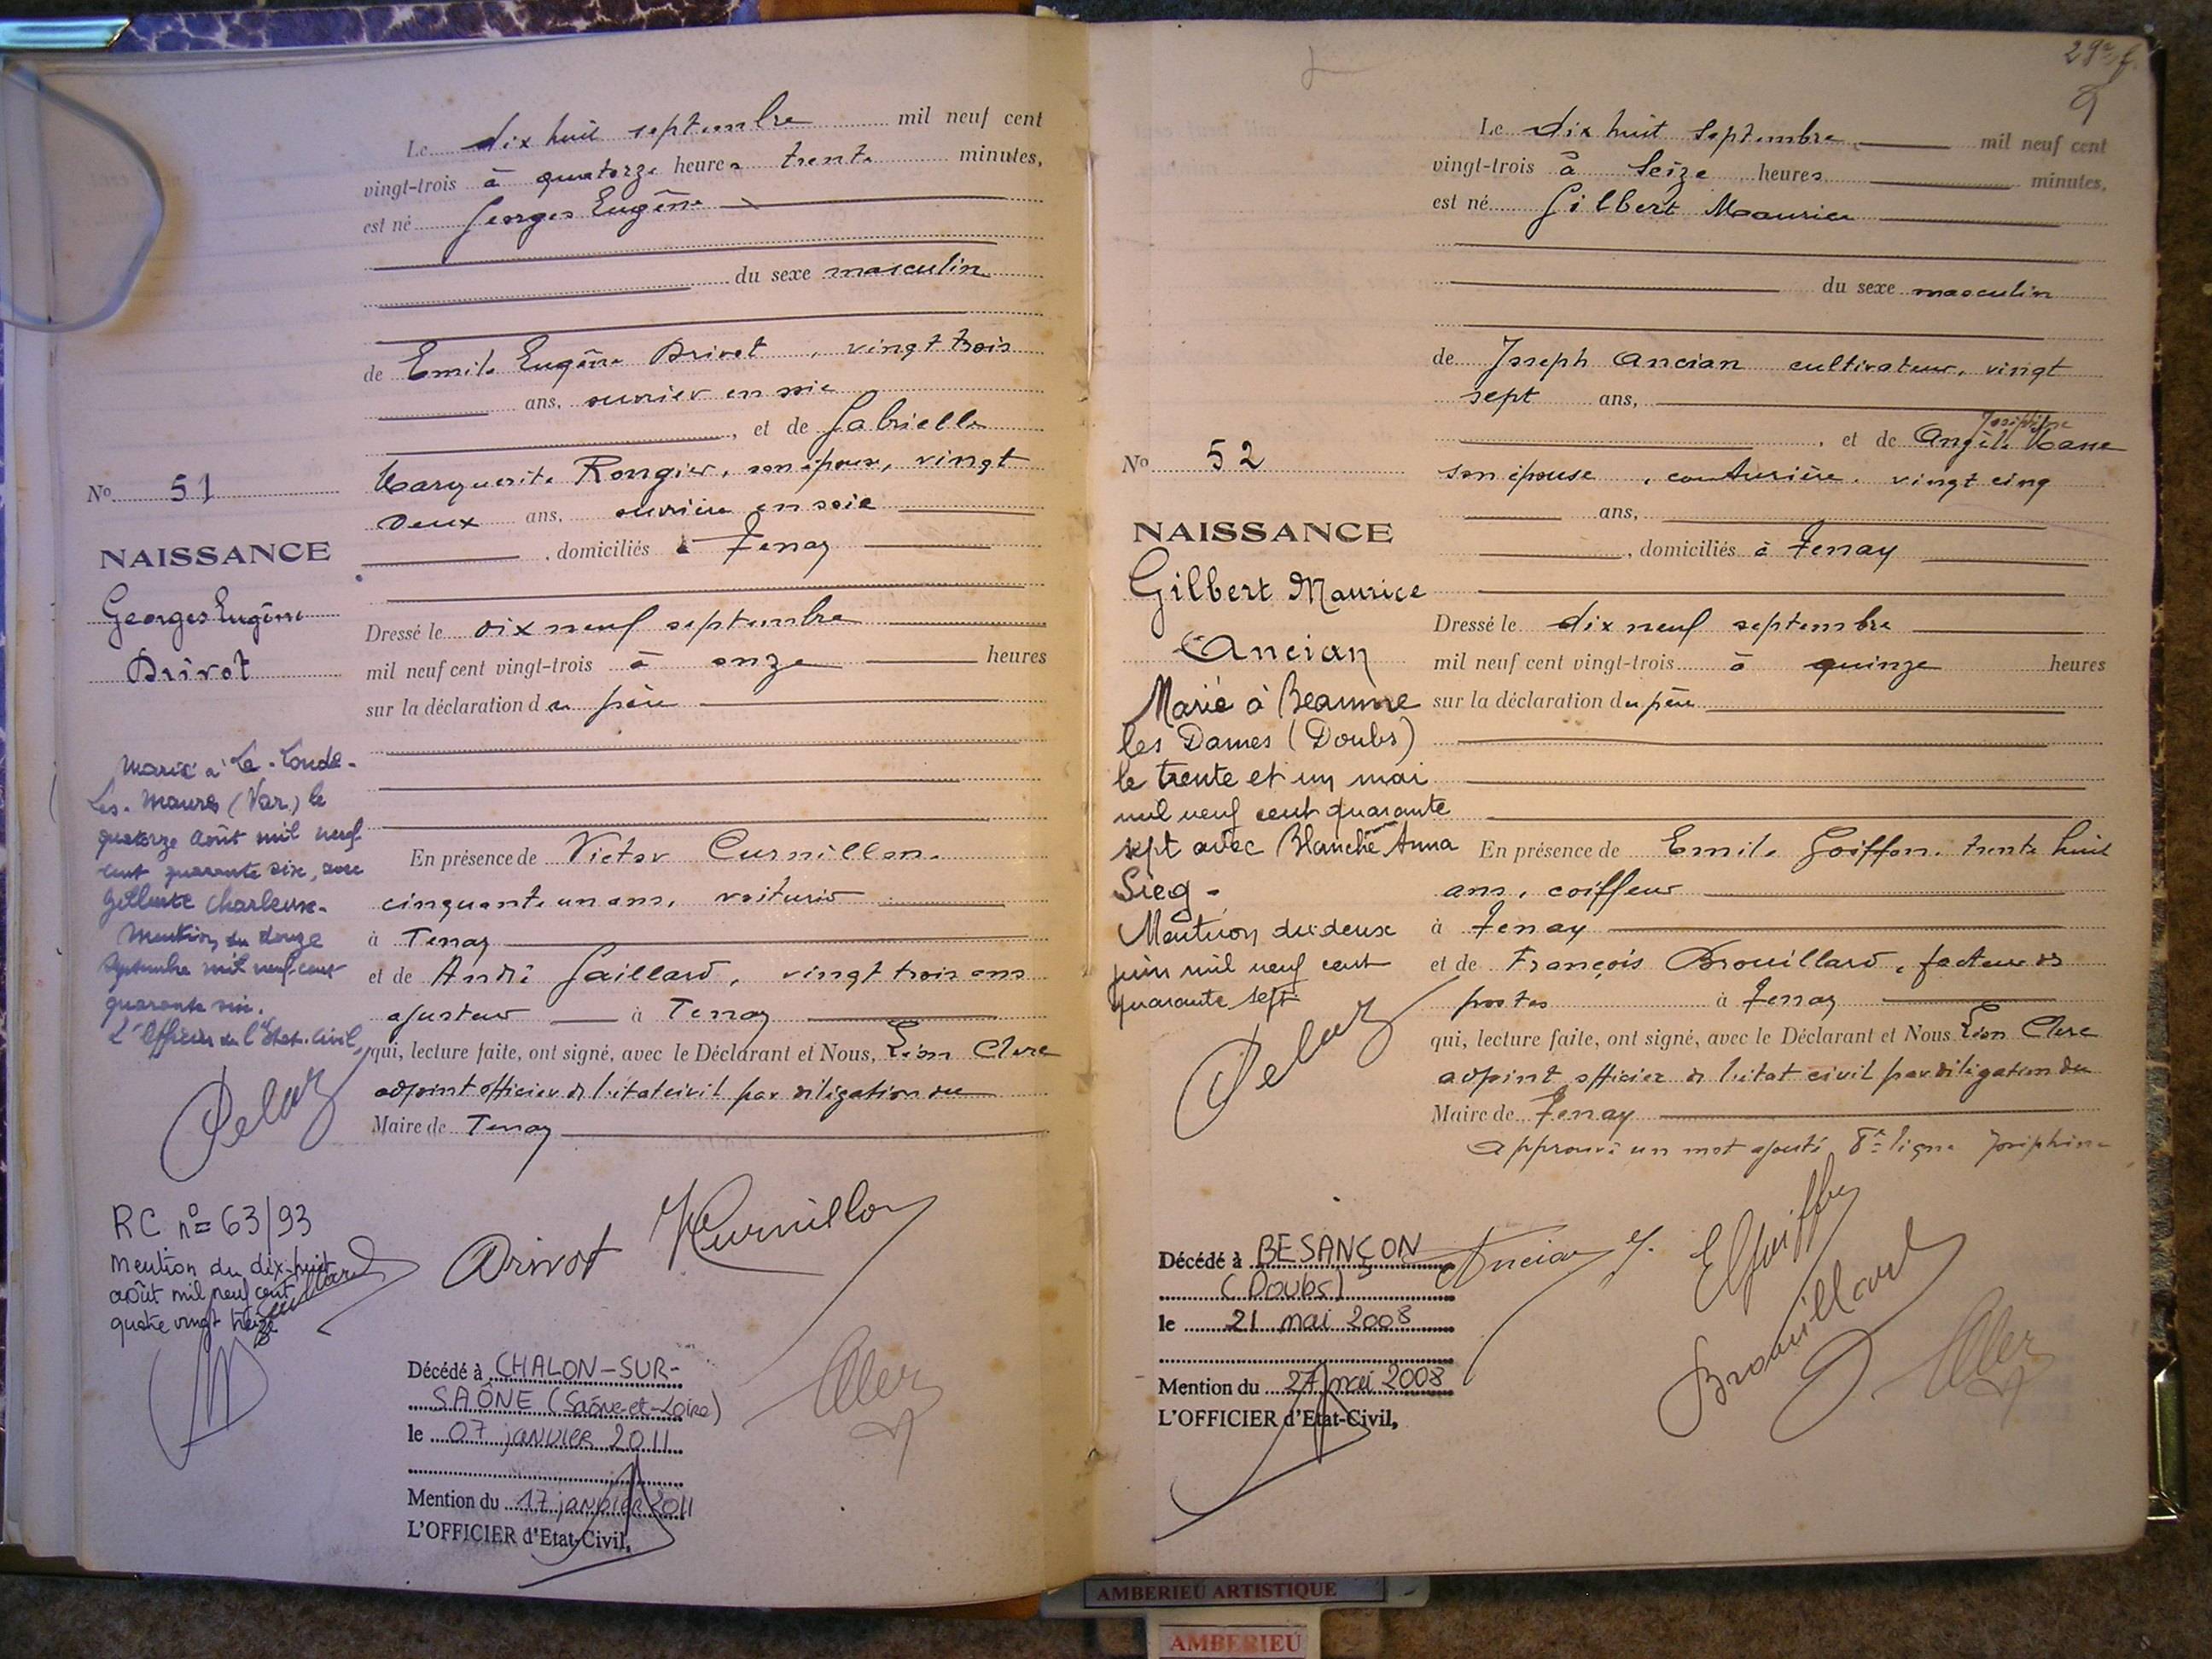 Le dix huit septembre mil neuf cent
vingt-trois à quatorze heures trente minutes,
est né Georges Eugène
du sexe masculin
de Emile Eugène Drivot, vingt trois
ans, ouvrier en soie
, et de Gabrielle
Marguerite Rongier, son épouse, vingt
deux ans, ouvrière en soie
, domiciliés à Tenay
Dressé le dix neuf septembre
mil neuf cent vingt-trois à onze heures
sur la déclaration du père
En présence de Victor Curnillon,
cinquante un ans, voiturier
à Tenay
et de André Gaillard, vingt trois ans
ajusteur à Tenay
qui, lecture faite, ont signé, avec le Déclarant et Nous, Léon Clerc
adjoint officier de l'état civil par délégation du
Maire de Tenay
No 51
NAISSANCE
Georges Eugène
Drivot
Marié à La-Londe-
Les-Maures (Var) le
quatorze août mil neuf
cent quarante six, avec
Gilberte Charleux.
Mention du douze
septembre mil neuf cent
quarante six.
L'Officier de l'Etat-Civil,
Pelaz
RC n° 63/93
Mention du dix-huit
août mil neuf cent
quatre vingt treize
Drivot
Curnillon
Décédé à CHALON-SUR-
SAÔNE (Saône-et-Loire)
le 07 janvier 2011
Mention du 17 janvier 2011
L'OFFICIER d'Etat-Civil,
Le dix huit septembre mil neuf cent
vingt-trois à seize heures minutes,
est né Gilbert Maurice
du sexe masculin
de Joseph Ancian cultivateur, vingt
sept ans,
Joséphine
, et de Angèle
son épouse, couturière, vingt cinq
ans,
, domiciliés à Tenay
Dressé le dix neuf septembre
mil neuf cent vingt-trois à quinze heures
sur la déclaration du père
En présence de Emile Goiffon, trente huit
ans, coiffeur
à Tenay
et de François Brouillard, facteur des
postes à Tenay
qui, lecture faite, ont signé, avec le Déclarant et Nous Léon Clerc
adjoint officier de l'état civil par délégation du
Maire de Tenay
Approuvé un mot ajouté 8e ligne Joséphine
No 52
NAISSANCE
Gilbert Maurice
Ancian
Marié à Beaume
les Dames (Doubs)
le trente et un mai
mil neuf cent quarante
sept avec Blanche Anna
Sieg -
Mention du deux
juin mil neuf cent
quarante sept
Pelaz
Ancian J.
EGoiffon
Brouillard
Décédé à BESANÇON
(Doubs)
le 21 mai 2008
Mention du 27 mai 2008
L'OFFICIER d'Etat-Civil,
AMBERIEU ARTISTIQUE
AMBERIEU